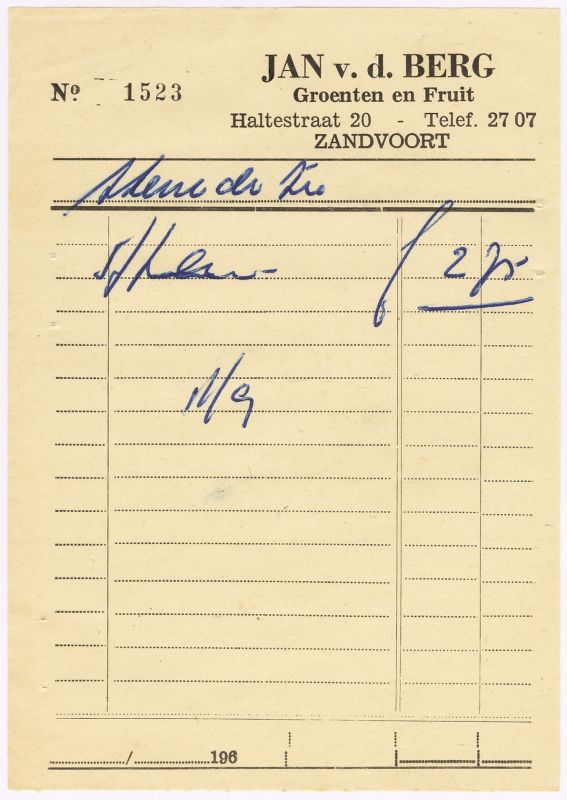 JAN v. d. BERG
Nº 1523
Groenten en Fruit
Haltestraat 20 - Telef. 27 07
ZANDVOORT
f 2 75
11/9
/ 196